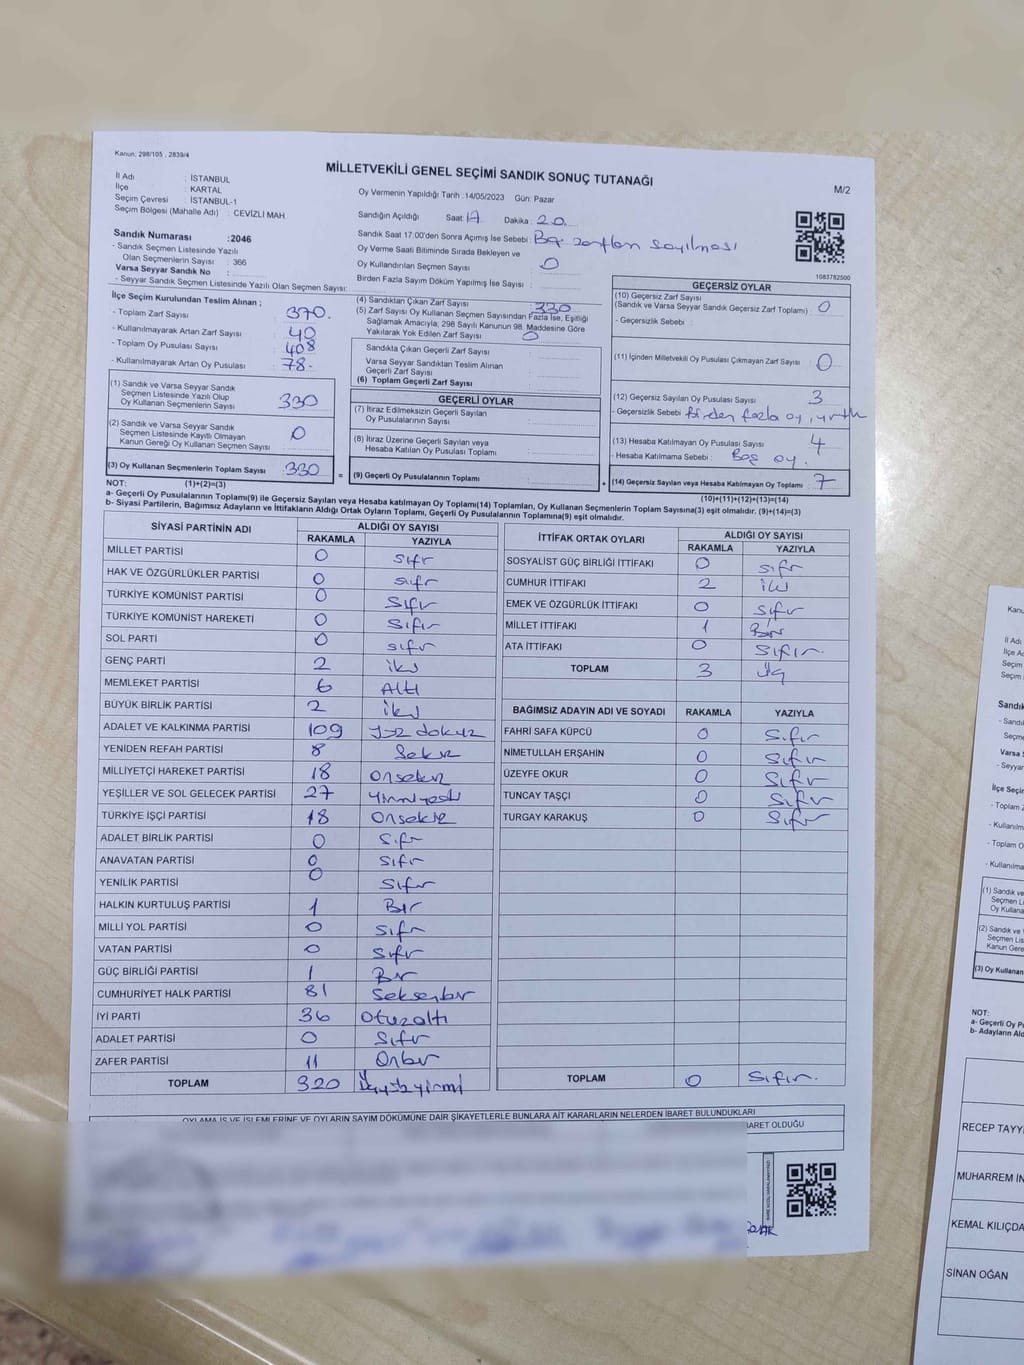 Kanun; 298/105 , 2839/4
MİLLETVEKİLİ GENEL SEÇİMİ SANDIK SONUÇ TUTANAĞI
M/2
İl Adı : İSTANBUL
İlçe : KARTAL
Seçim Çevresi : İSTANBUL-1
Seçim Bölgesi (Mahalle Adı) : CEVİZLİ MAH.
Sandık Numarası :2046
- Sandık Seçmen Listesinde Yazılı
Olan Seçmenlerin Sayısı : 366
Varsa Seyyar Sandık No :
- Seyyar Sandık Seçmen Listesinde Yazılı Olan Seçmen Sayısı:
Oy Vermenin Yapıldığı Tarih :14/05/2023 Gün: Pazar
Sandığın Açıldığı Saat: 17 Dakika : 20
Sandık Saat 17:00'den Sonra Açımış İse Sebebi : Boş zarfların sayılması
Oy Verme Saati Bitiminde Sırada Bekleyen ve
Oy Kullandırılan Seçmen Sayısı : 0
Birden Fazla Sayım Döküm Yapılmış İse Sayısı :
1083782500
İlçe Seçim Kurulundan Teslim Alınan ;
- Toplam Zarf Sayısı : 370.
- Kullanılmayarak Artan Zarf Sayısı : 40
- Toplam Oy Pusulası Sayısı : 408
- Kullanılmayarak Artan Oy Pusulası : 78.
(1) Sandık ve Varsa Seyyar Sandık
Seçmen Listesinde Yazılı Olup
Oy Kullanan Seçmenlerin Sayısı : 330
(2) Sandık ve Varsa Seyyar Sandık
Seçmen Listesinde Kayıtlı Olmayan
Kanun Gereği Oy Kullanan Seçmen Sayısı : 0
(3) Oy Kullanan Seçmenlerin Toplam Sayısı : 330 =
(4) Sandıktan Çıkan Zarf Sayısı : 330
(5) Zarf Sayısı Oy Kullanan Seçmen Sayısından Fazla İse, Eşitliği
Sağlamak Amacıyla, 298 Sayılı Kanunun 98. Maddesine Göre
Yakılarak Yok Edilen Zarf Sayısı : 0
Sandıkta Çıkan Geçerli Zarf Sayısı :
Varsa Seyyar Sandıktan Teslim Alınan
Geçerli Zarf Sayısı :
(6) Toplam Geçerli Zarf Sayısı :
GEÇERLİ OYLAR
(7) İtiraz Edilmeksizin Geçerli Sayılan
Oy Pusulalarının Sayısı :
(8) İtiraz Üzerine Geçerli Sayılan veya
Hesaba Katılan Oy Pusulası Toplamı :
(9) Geçerli Oy Pusulalarının Toplamı : +
GEÇERSİZ OYLAR
(10) Geçersiz Zarf Sayısı
(Sandık ve Varsa Seyyar Sandık Geçersiz Zarf Toplamı) : 0
- Geçersizlik Sebebi :
(11) İçinden Milletvekili Oy Pusulası Çıkmayan Zarf Sayısı : 0
(12) Geçersiz Sayılan Oy Pusulası Sayısı : 3
- Geçersizlik Sebebi : Birden fazla oy, yırtık
(13) Hesaba Katılmayan Oy Pusulası Sayısı : 4
- Hesaba Katılmama Sebebi : Boş oy.
(14) Geçersiz Sayılan veya Hesaba Katılmayan Oy Toplamı : 7
NOT: (1)+(2)=(3)
(10)+(11)+(12)+(13)=(14)
a- Geçerli Oy Pusulalarının Toplamı(9) ile Geçersiz Sayılan veya Hesaba katılmayan Oy Toplamı(14) Toplamları, Oy Kullanan Seçmenlerin Toplam Sayısına(3) eşit olmalıdır. (9)+(14)=(3)
b- Siyasi Partilerin, Bağımsız Adayların ve İttifakların Aldığı Ortak Oyların Toplamı, Geçerli Oy Pusulalarının Toplamına(9) eşit olmalıdır.
SİYASİ PARTİNİN ADI ALDIĞI OY SAYISI
RAKAMLA YAZIYLA
MİLLET PARTİSİ 0 sıfır
HAK VE ÖZGÜRLÜKLER PARTİSİ 0 sıfır
TÜRKİYE KOMÜNİST PARTİSİ 0 sıfır
TÜRKİYE KOMÜNİST HAREKETİ 0 sıfır
SOL PARTİ 0 sıfır
GENÇ PARTİ 2 iki
MEMLEKET PARTİSİ 6 Altı
BÜYÜK BİRLİK PARTİSİ 2 iki
ADALET VE KALKINMA PARTİSİ 109 yüz dokuz
YENİDEN REFAH PARTİSİ 8 Sekiz
MİLLİYETÇİ HAREKET PARTİSİ 18 Onsekiz
YEŞİLLER VE SOL GELECEK PARTİSİ 27 Yirmiyedi
TÜRKİYE İŞÇİ PARTİSİ 18 Onsekiz
ADALET BİRLİK PARTİSİ 0 Sıfır
ANAVATAN PARTİSİ 0 Sıfır
YENİLİK PARTİSİ 0 Sıfır
HALKIN KURTULUŞ PARTİSİ 1 Bir
MİLLİ YOL PARTİSİ 0 Sıfır
VATAN PARTİSİ 0 Sıfır
GÜÇ BİRLİĞİ PARTİSİ 1 Bir
CUMHURİYET HALK PARTİSİ 81 Seksenbir
İYİ PARTİ 36 Otuzaltı
ADALET PARTİSİ 0 Sıfır
ZAFER PARTİSİ 11 Onbir
TOPLAM 320 Üçyüzyirmi
İTTİFAK ORTAK OYLARI ALDIĞI OY SAYISI
RAKAMLA YAZIYLA
SOSYALİST GÜÇ BİRLİĞİ İTTİFAKI 0 sıfır
CUMHUR İTTİFAKI 2 iki
EMEK VE ÖZGÜRLÜK İTTİFAKI 0 sıfır
MİLLET İTTİFAKI 1 Bir
ATA İTTİFAKI 0 Sıfır.
TOPLAM 3 üç
BAĞIMSIZ ADAYIN ADI VE SOYADI RAKAMLA YAZIYLA
FAHRİ SAFA KÜPCÜ 0 Sıfır
NİMETULLAH ERŞAHİN 0 Sıfır
ÜZEYFE OKUR 0 Sıfır
TUNCAY TAŞÇI 0 Sıfır
TURGAY KARAKUŞ 0 Sıfır
TOPLAM 0 Sıfır.
OYLAMA İŞ VE İŞLEMLERİNE VE OYLARIN SAYIM DÖKÜMÜNE DAİR ŞİKAYETLERLE BUNLARA AİT KARARLARIN NELERDEN İBARET BULUNDUKLARI
BARET OLDUĞU
Kanu
İl Adı
İlçe Ac
Seçim
Seçim
Sandık
- Sandı
Seçme
Varsa
- Seyya
İlçe Seçir
- Toplam Z
- Kullanılm
- Toplam O
- Kullanılma
(1) Sandık ve
Seçmen Li
Oy Kullana
(2) Sandık ve
Seçmen Lis
Kanun Gere
(3) Oy Kullanan
NOT:
a- Geçerli Oy P
b- Adayların Ald
RECEP TAYY
MUHARREM İN
KEMAL KILIÇDA
SİNAN OĞAN